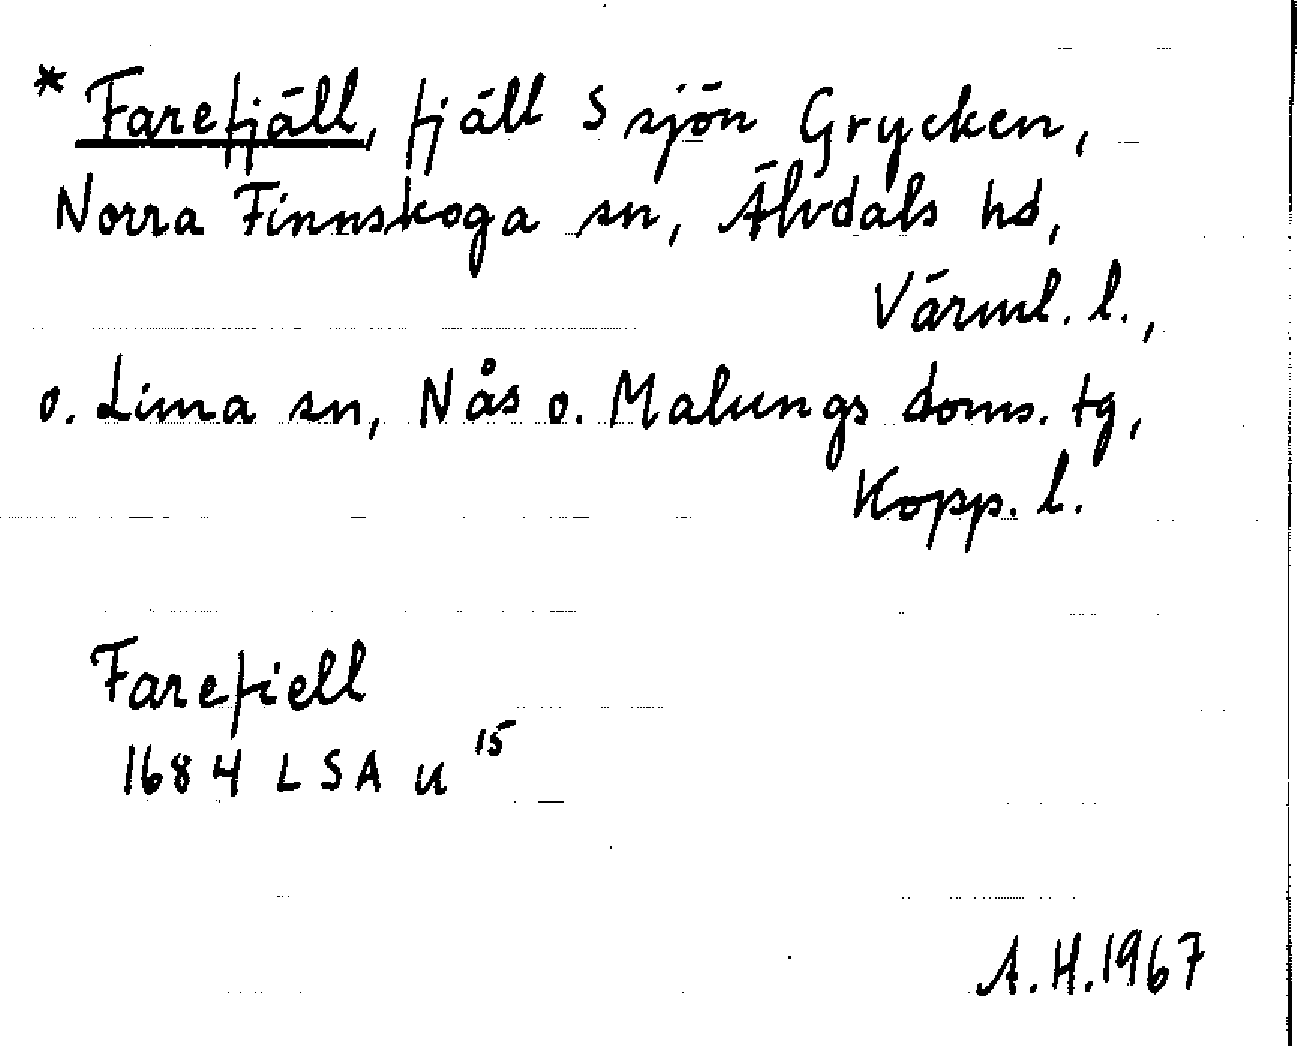 * Farefjäll, fjäll S sjön Grycken,
Norra Finnskoga sn, Älvdals hd,
Värml. l.,
o. Lima sn, Nås o. Malungs doms. tg,
Kopp. l.
Farefiell
1684 LSA u 15
A.H.1967